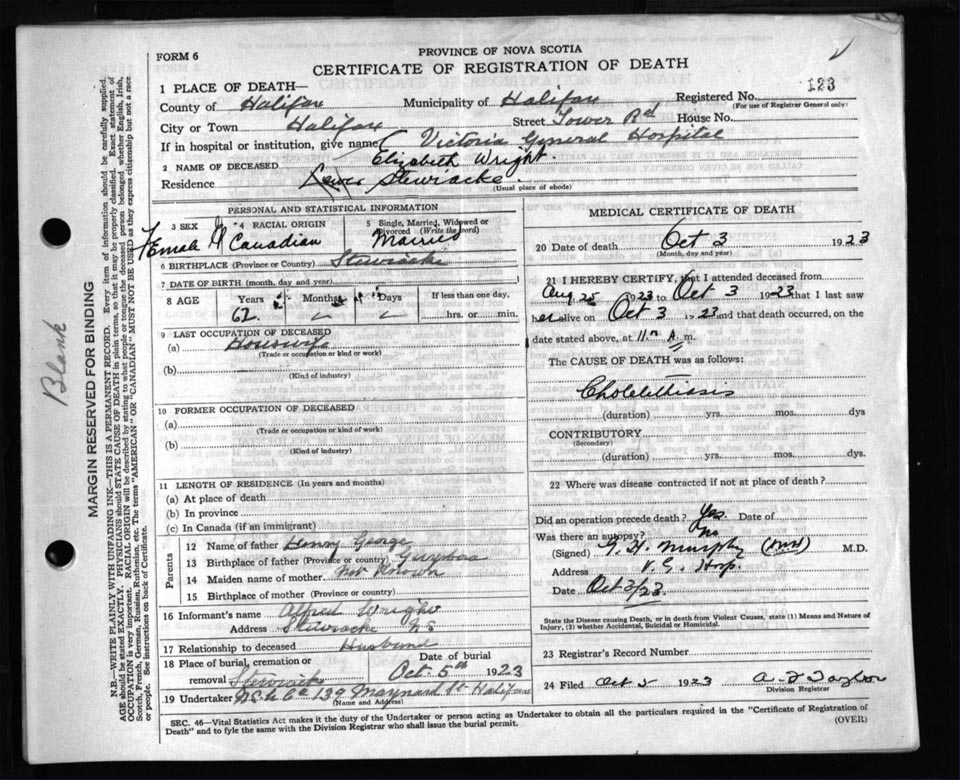 FORM 6
PROVINCE OF NOVA SCOTIA
CERTIFICATE OF REGISTRATION OF DEATH
1 PLACE OF DEATH—
Registered No. 123
(For use of Registrar General only)
County of Halifax Municipality of Halifax
City or Town Halifax Street Tower Rd House No.
If in hospital or institution, give name Victoria General Hospital
2 NAME OF DECEASED Elizabeth Wright.
Residence Lower Stewiacke.
(Usual place of abode)
PERSONAL AND STATISTICAL INFORMATION
3 SEX 4 RACIAL ORIGIN 5 Single, Married, Widowed or Divorced (Write the word)
Female Canadian Married
6 BIRTHPLACE (Province or Country) Stewiacke
7 DATE OF BIRTH (month, day and year)
8 AGE Years Months Days If less than one day,
62 hrs. or min.
9 LAST OCCUPATION OF DECEASED
(a) Housewife
(Trade or occupation or kind or work)
(b)
(Kind of industry)
10 FORMER OCCUPATION OF DECEASED
(a)
(Trade or occupation or kind of work)
(b)
(Kind of industry)
11 LENGTH OF RESIDENCE (In years and months)
(a) At place of death
(b) In province
(c) In Canada (if an immigrant)
Parents
12 Name of father Henry George
13 Birthplace of father (Province or country)
14 Maiden name of mother Not Known
15 Birthplace of mother (Province or country)
16 Informant's name Alfred Wright
Address Stewiacke NS
17 Relationship to deceased Husband
18 Place of burial, cremation or removal Date of burial
Oct. 5th 1923
19 Undertaker N.S.U Co 139 Maynard St. Halifax
(Name and Address)
MEDICAL CERTIFICATE OF DEATH
20 Date of death Oct 3 1923
(Month, day and year)
21 I HEREBY CERTIFY, that I attended deceased from
Aug. 25 1923 to Oct 3 1923 that I last saw
her alive on Oct 3 1923 and that death occurred, on
date stated above, at 11 A. m.
The CAUSE OF DEATH was as follows:
Cholelithiasis
(duration) yrs. mos. dys
CONTRIBUTORY
(Secondary)
(duration) yrs. mos. dys.
22 Where was disease contracted if not at place of death?
Did an operation precede death? Yes. Date of
Was there an autopsy? No
(Signed) G. H. Murphy M.D.
Address V. G. Hosp.
Date Oct 3/23.
State the Disease causing Death, or in death from Violent Causes, state (1) Means and Nature of Injury, (2) whether Accidental, Suicidal or Homicidal.
23 Registrar's Record Number
24 Filed Oct 5 1923
Division Registrar
SEC. 46—Vital Statistics Act makes it the duty of the Undertaker or person acting as Undertaker to obtain all the particulars required in the "Certificate of Registration of Death" and to fyle the same with the Division Registrar who shall issue the burial permit.
(OVER)
Blank
MARGIN RESERVED FOR BINDING
N.B.—WRITE PLAINLY WITH UNFADING INK—THIS IS A PERMANENT RECORD. Every item of information should be carefully supplied.
AGE should be stated EXACTLY. PHYSICIANS should STATE CAUSE OF DEATH in plain terms, so that it may be properly classified. Exact statement of
OCCUPATION is very important. RACIAL ORIGIN will be described by stating to what people or tongue the deceased person belonged whether English, Irish,
Scotch, French, German, Russian, Ruthenian, etc. The terms "AMERICAN" OR "CANADIAN" MUST NOT BE USED as they express citizenship but not a race
or people. See instructions on back of Certificate.